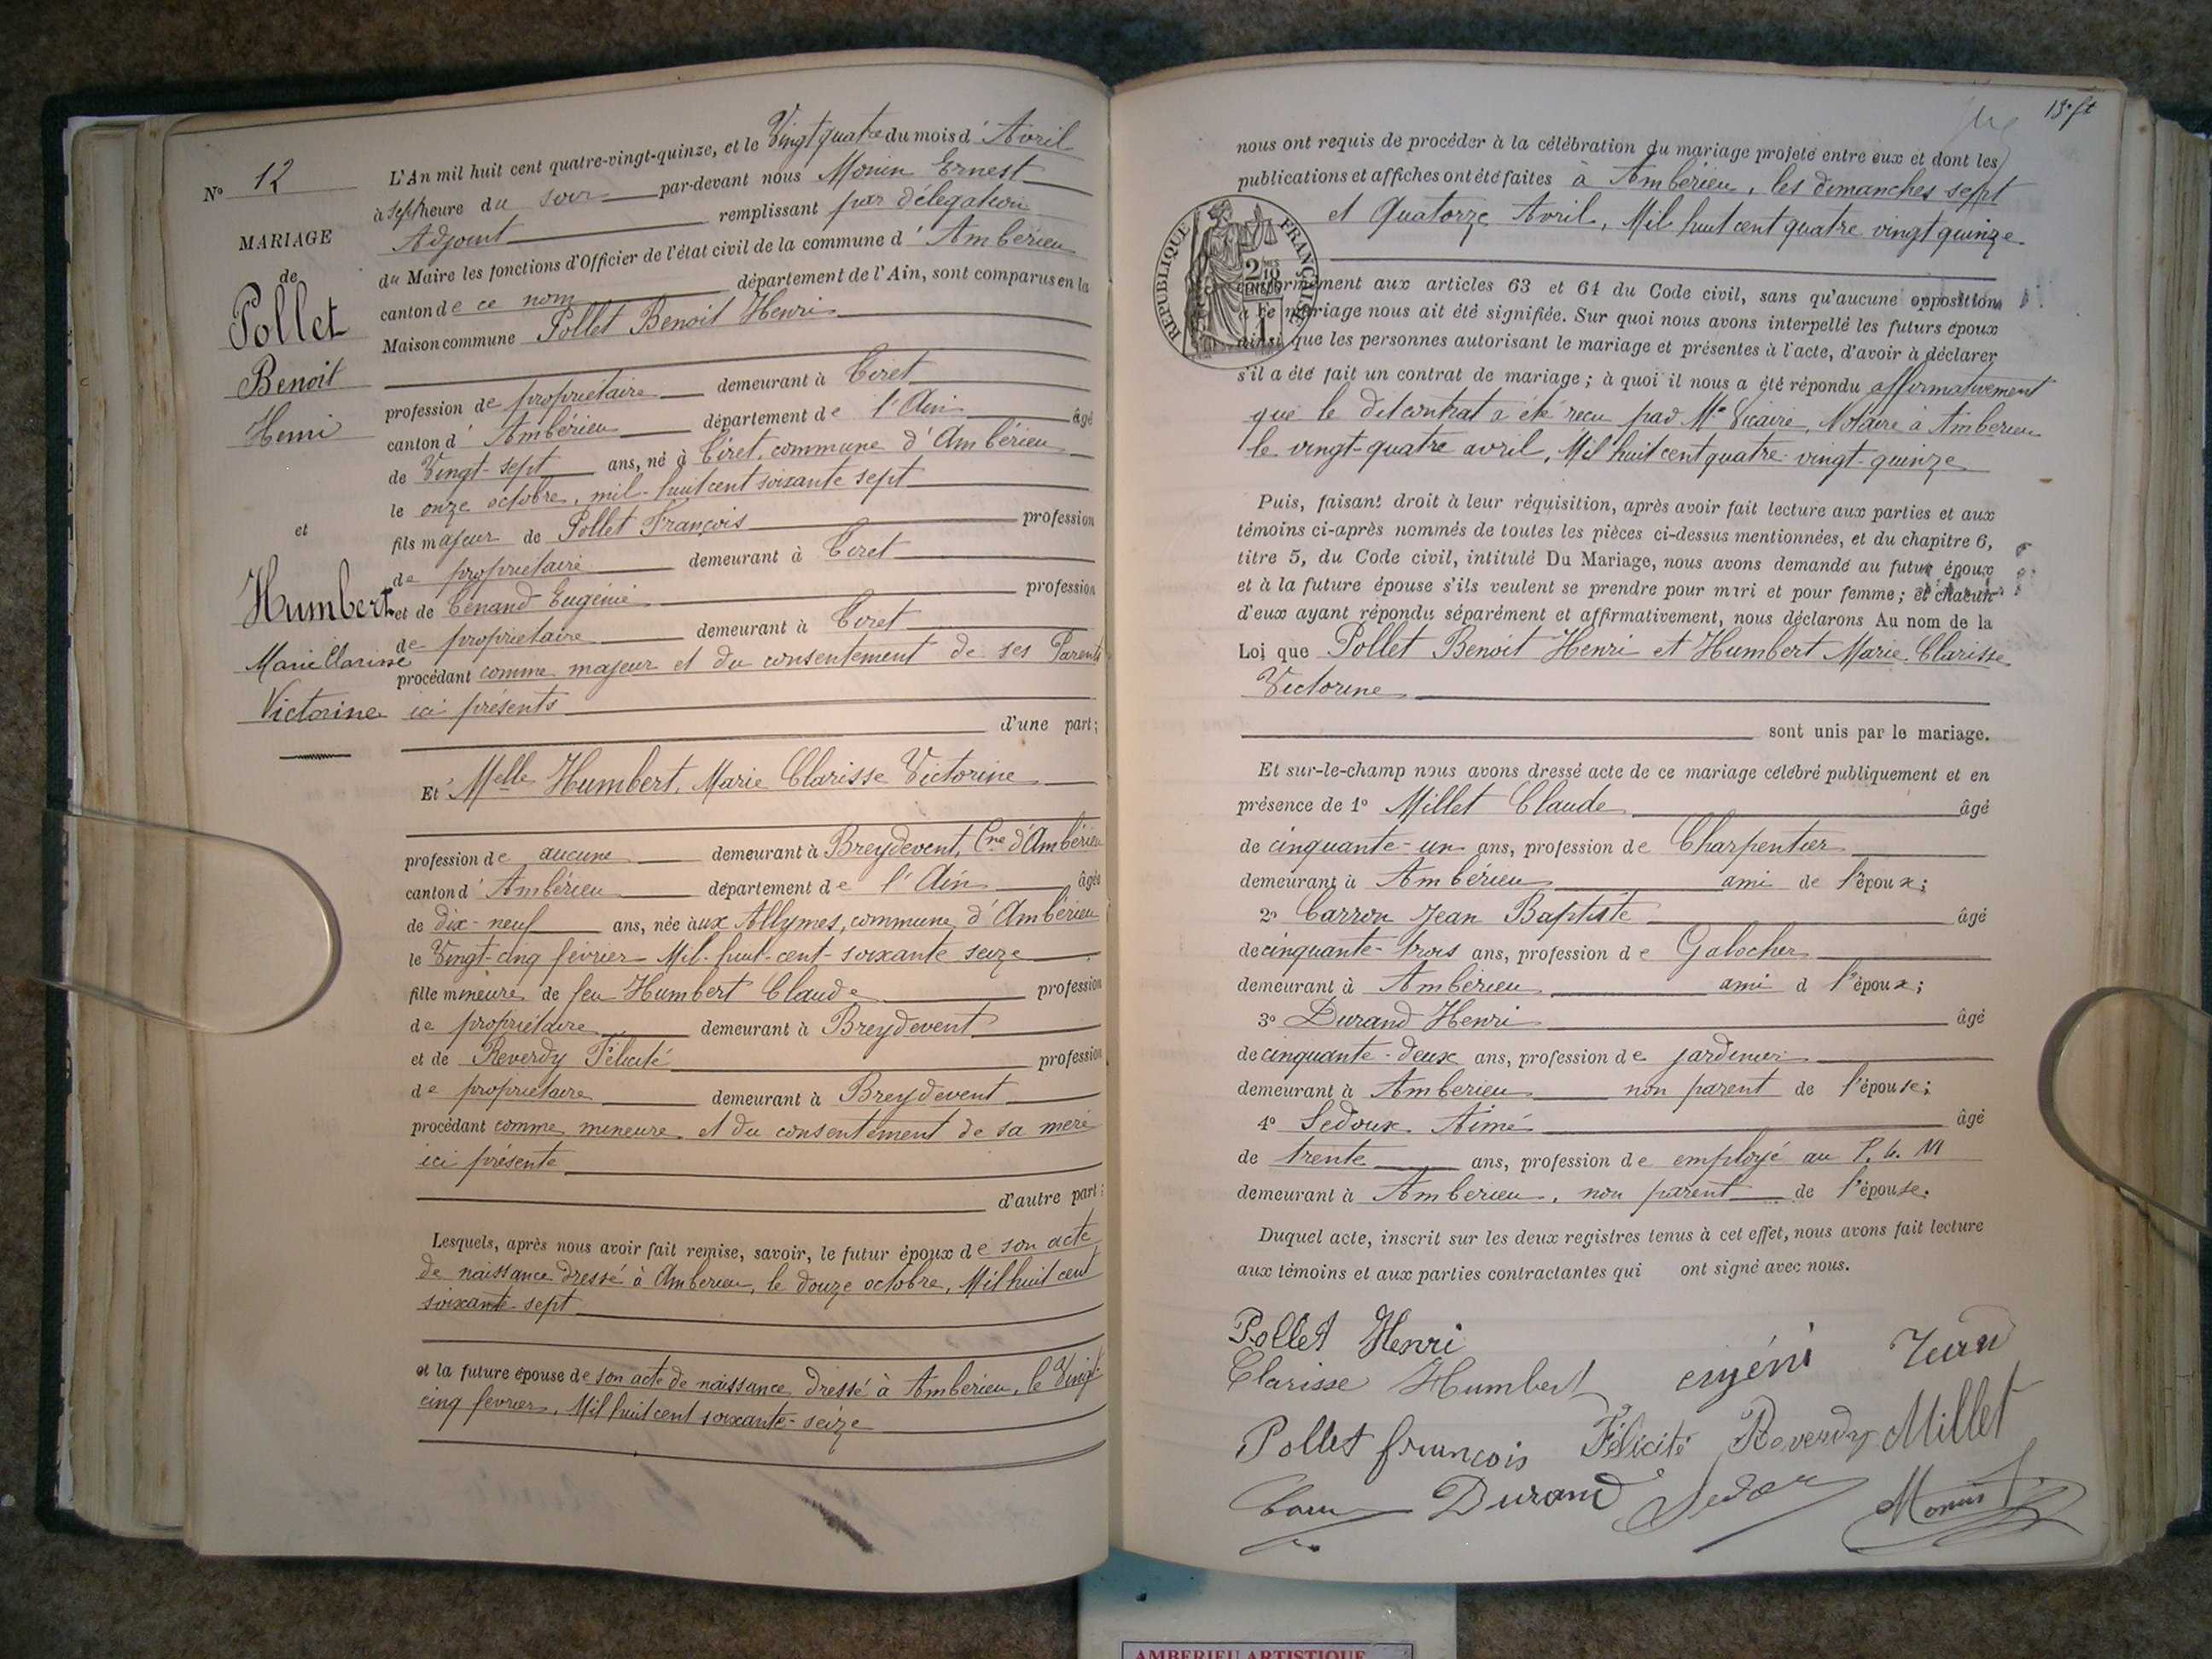 N° 12
MARIAGE
de
Pollet
Benoit
Henri
et
Humbert
Marie Clarisse
Victorine
L'An mil huit cent quatre-vingt-quinze, et le Vingt quatre du mois d'Avril
à sept heure du soir par-devant nous Monin Ernest
Adjoint remplissant par délégation
du Maire les fonctions d'Officier de l'état civil de la commune d'Ambérieu
canton de ce nom département de l'Ain, sont comparus en la
Maison commune Pollet Benoit Henri
profession de propriétaire demeurant à Tiret
canton d'Ambérieu département de l'Ain âgé
de Vingt-sept ans, né à Tiret, commune d'Ambérieu
le onze octobre, mil-huit cent soixante sept
fils majeur de Pollet François profession
de propriétaire demeurant à Tiret
et de Tenand Eugénie profession
de propriétaire demeurant à Tiret
procédant comme majeur et du consentement de ses Parents
ici présents
d'une part;
Et Melle Humbert, Marie Clarisse Victorine
profession de aucune demeurant à Breydevent, Cne d'Ambérieu
canton d'Ambérieu département de l'Ain âgée
de dix-neuf ans, née aux Allymes, commune d'Ambérieu
le Vingt-cinq février Mil-huit-cent-soixante seize
fille mineure de feu Humbert Claude profession
de propriétaire demeurant à Breydevent
et de Reverdy Félicité profession
de propriétaire demeurant à Breydevent
procédant comme mineure et du consentement de sa mère
ici présente
d'autre part:
Lesquels, après nous avoir fait remise, savoir, le futur époux de son acte
de naissance dressé à Ambérieu, le douze octobre, Mil huit cent
soixante-sept
et la future épouse de son acte de naissance dressé à Ambérieu, le Vingt
cinq février, Mil huit cent soixante-seize
nous ont requis de procéder à la célébration du mariage projeté entre eux et dont les
publications et affiches ont été faites à Ambérieu, les dimanches sept
et Quatorze Avril, Mil huit cent quatre vingt quinze
RÉPUBLIQUE FRANÇAISE
conformément aux articles 63 et 64 du Code civil, sans qu'aucune opposition
à ce mariage nous ait été signifiée. Sur quoi nous avons interpellé les futurs époux
ainsi que les personnes autorisant le mariage et présentes à l'acte, d'avoir à déclarer
s'il a été fait un contrat de mariage; à quoi il nous a été répondu affirmativement
que le dit contrat a été reçu par Me Vicaire, Notaire à Ambérieu
le vingt-quatre avril, Mil huit cent quatre-vingt-quinze
Puis, faisant droit à leur réquisition, après avoir fait lecture aux parties et aux
témoins ci-après nommés de toutes les pièces ci-dessus mentionnées, et du chapitre 6,
titre 5, du Code civil, intitulé Du Mariage, nous avons demandé au futur époux
et à la future épouse s'ils veulent se prendre pour mari et pour femme; et chacun
d'eux ayant répondu séparément et affirmativement, nous déclarons Au nom de la
Loi que Pollet Benoit Henri et Humbert Marie Clarisse
Victorine
sont unis par le mariage.
Et sur-le-champ nous avons dressé acte de ce mariage célébré publiquement et en
présence de 1° Millet Claude âgé
de cinquante-un ans, profession de Charpentier
demeurant à Ambérieu ami de l'époux;
2° Carron Jean Baptiste âgé
de cinquante-trois ans, profession de Galocher
demeurant à Ambérieu ami d l'époux;
3° Durand Henri âgé
de cinquante-deux ans, profession de jardinier
demeurant à Ambérieu non parent de l'épouse;
4° Sedoux Aimé âgé
de trente ans, profession de employé au P. L. M
demeurant à Ambérieu, non parent de l'épouse.
Duquel acte, inscrit sur les deux registres tenus à cet effet, nous avons fait lecture
aux témoins et aux parties contractantes qui ont signé avec nous.
Pollet Henri
Clarisse Humbert eugéni
Pollet françois Félicité Reverdy Millet
Durand Monin
AMBERIEU ARTISTIQUE